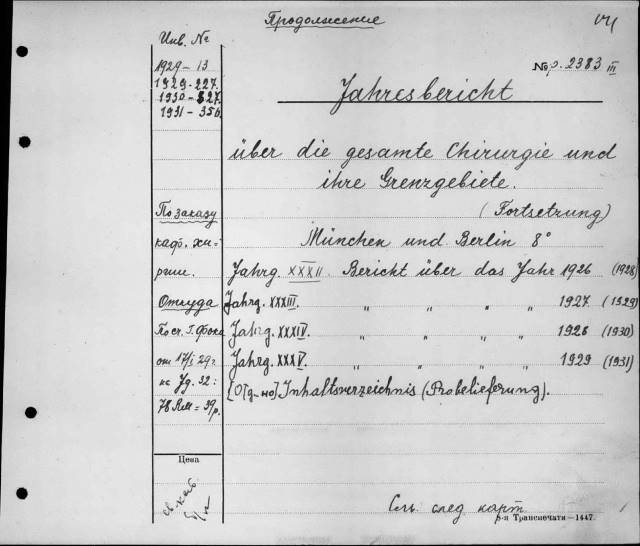 Продолжение
Инв. №
1929 - 13
1929 - 227.
1930 - 527.
1931 - 356.
№ p. 2383 III
Jahresbericht
über die gesamte Chirurgie und
ihre Grenzgebiete.
(Fortsetzung)
München und Berlin 8°
По заказу
каф. хи-
Jahrg. XXXII. Bericht über das Jahr 1926 (1928)
Откуда
Jahrg. XXXIII. " " " " 1927 (1929)
По сч. Г. Фока
Jahrg. XXXIV. " " " " 1928 (1930)
от 17/I 29 г.
Jahrg. XXXV. " " " " 1929 (1931)
№ 32:
[Отд-но] Inhaltsverzeichnis (Probelieferung).
78 RM = 39 р.
Цена
См. след карт
8-я Транспечати—1447.